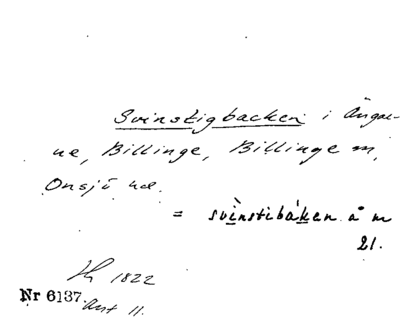 Svinstigbacken i Ängar-
na, Billinge, Billinge sn,
Onsjö hd.
= svìnstibáken å m
21.
1822
Nr 6137.
Ant 11.